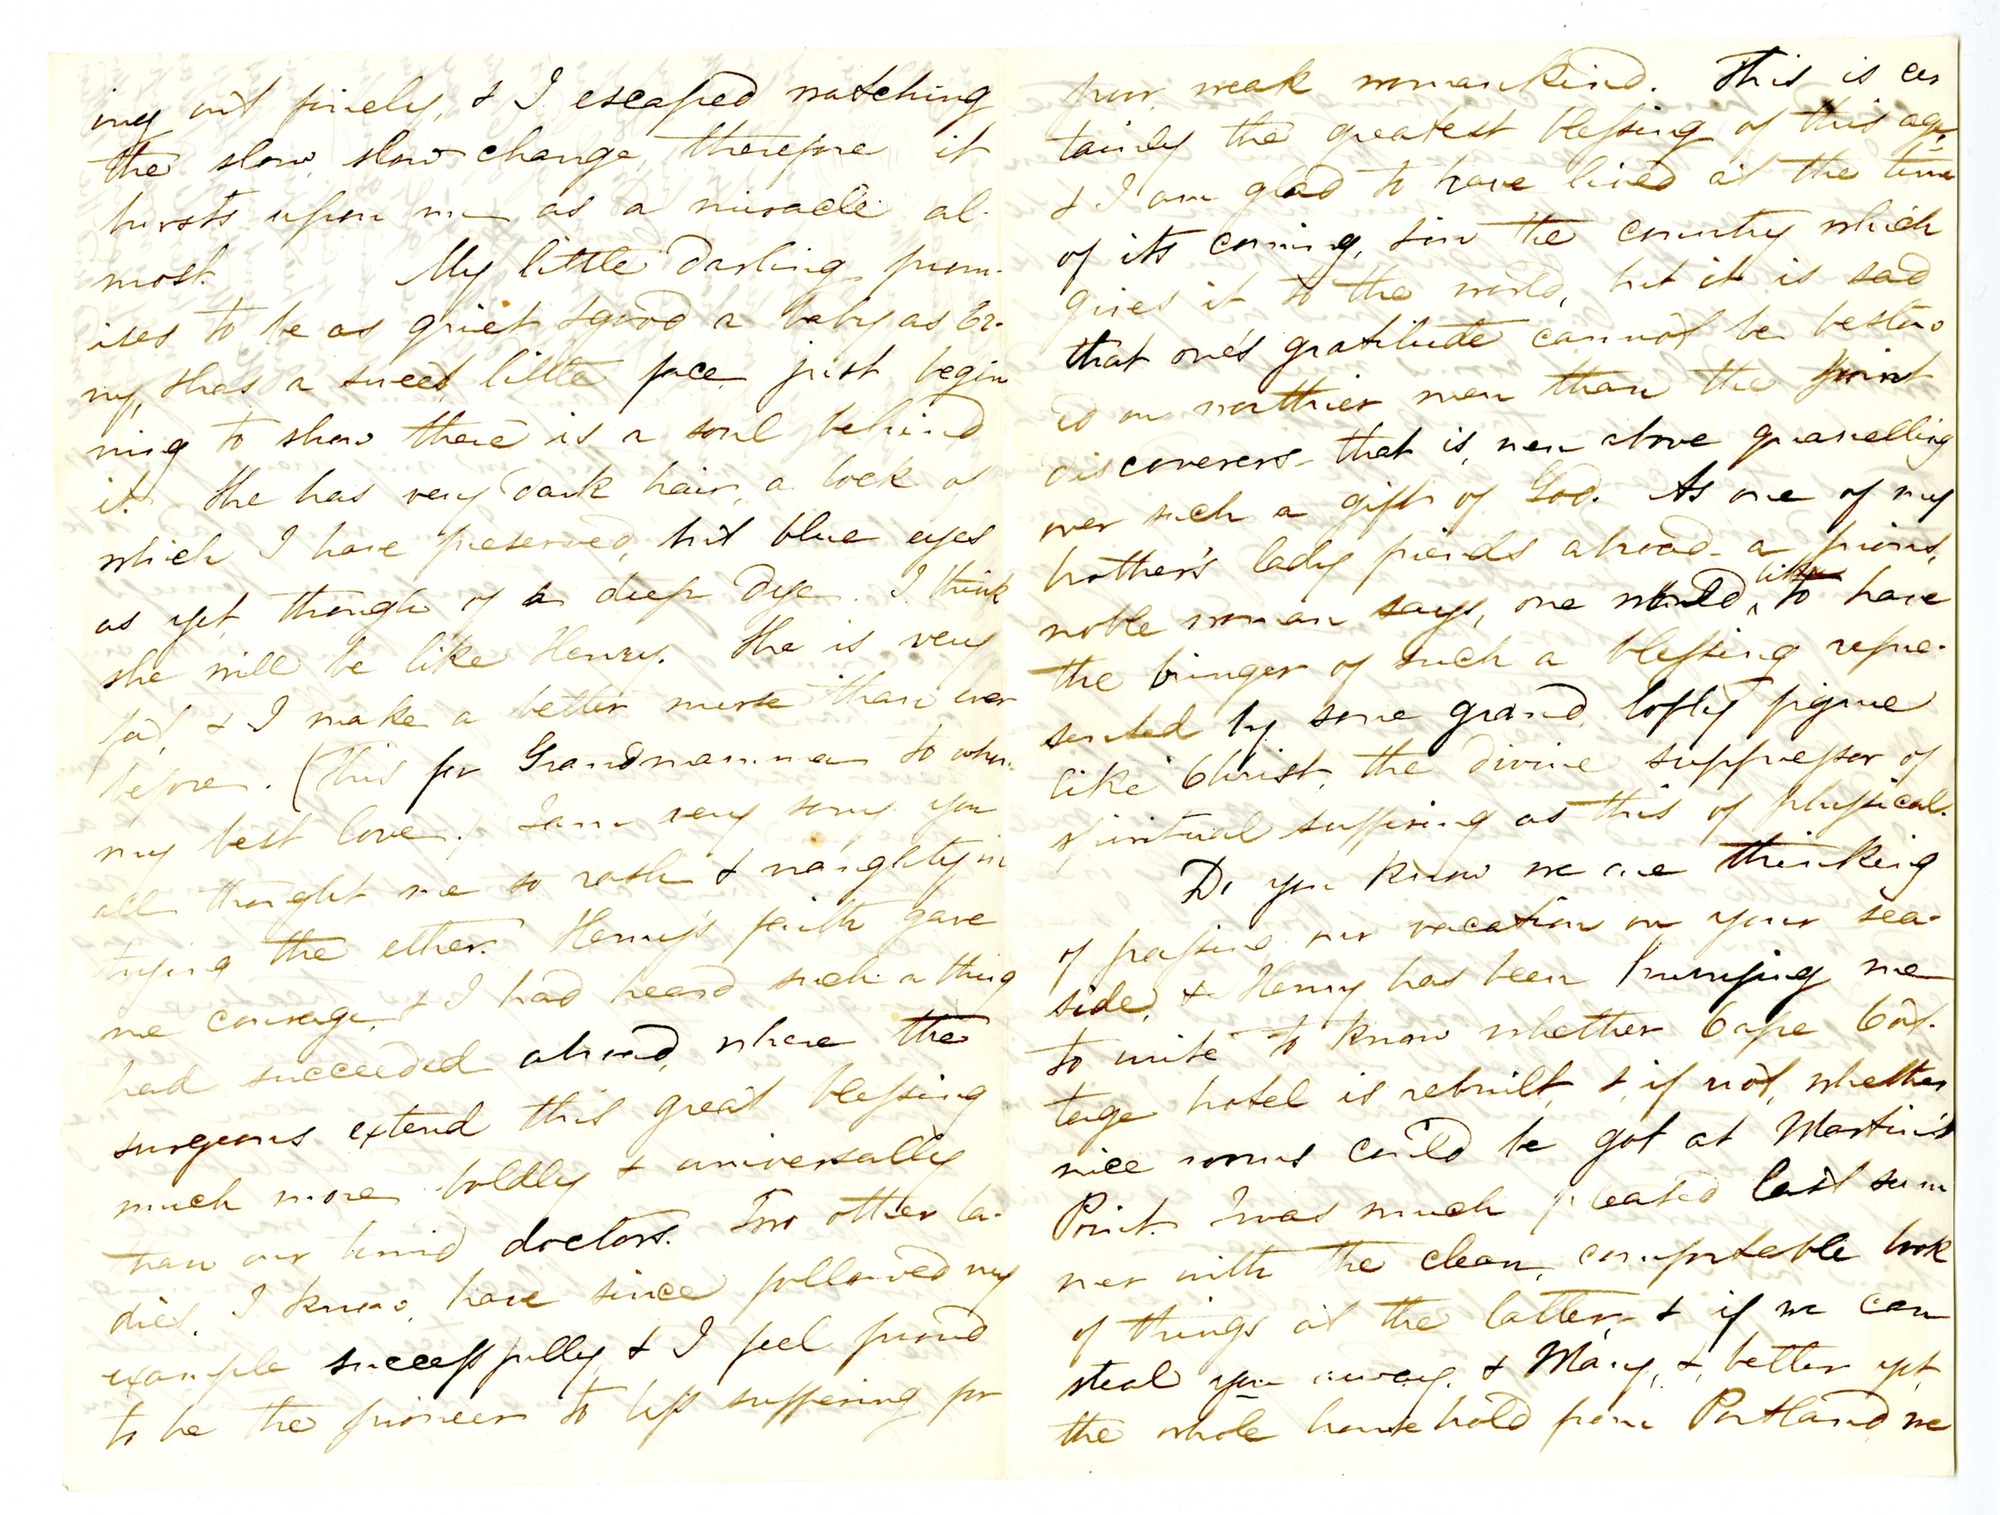 ing out finely, & I escaped watching
the slow, slow change, therefore it
bursts upon me as a miracle al-
most. My little darling prom-
ises to be as quiet & good a baby as Er-
ny, & has a sweet little face just begin
ning to show there is a soul behind
it. She has very dark hair, a lock of
which I have preserved, but blue eyes
as yet though of a deep dye. I think
she will be like Henry. She is very
fat, & I make a better nurse than ever
before. (This for Grandmamma to whom
my best love.) I am very sorry you
all thought me so rash & naughty in
trying the ether. Henry's faith gave
me courage, & I had heard such a thing
had succeeded abroad, where the
surgeons extend this great blessing
much more boldly & universally
than our timid doctors. Two other la-
dies, I know, have since followed my
example successfully & I feel proud
to be the pioneer to less suffering for
poor, weak womankind. This is cer
tainly the greatest blessing of this age,
& I am glad to have lived at the time
of its coming, & in the country which
gives it to the world, but it is sad
that one's gratitude cannot be bestow
ed on worthier men than the joint
discoverers - that is, men above quarrelling
over such a gift of God. As one of my
brother's lady friends abroad - a pious,
noble woman says, one would like to have
the bringer of such a blessing repre-
sented by some grand, lofty figure
like Christ, the divine suppressor of
spiritual suffering as this of physical.
Do you know we are thinking
of passing our vacation on your sea-
side, & Henry has been hurrying me
to write to know whether Cape Cot-
tage hotel is rebuilt, & if not, whether
nice rooms could be got at Martin's
Point. I was much pleased last sum
mer with the clean, comfortable look
of things at the latter, & if we can
steal you away, & Mary, &, better yet,
the whole household from Portland, we